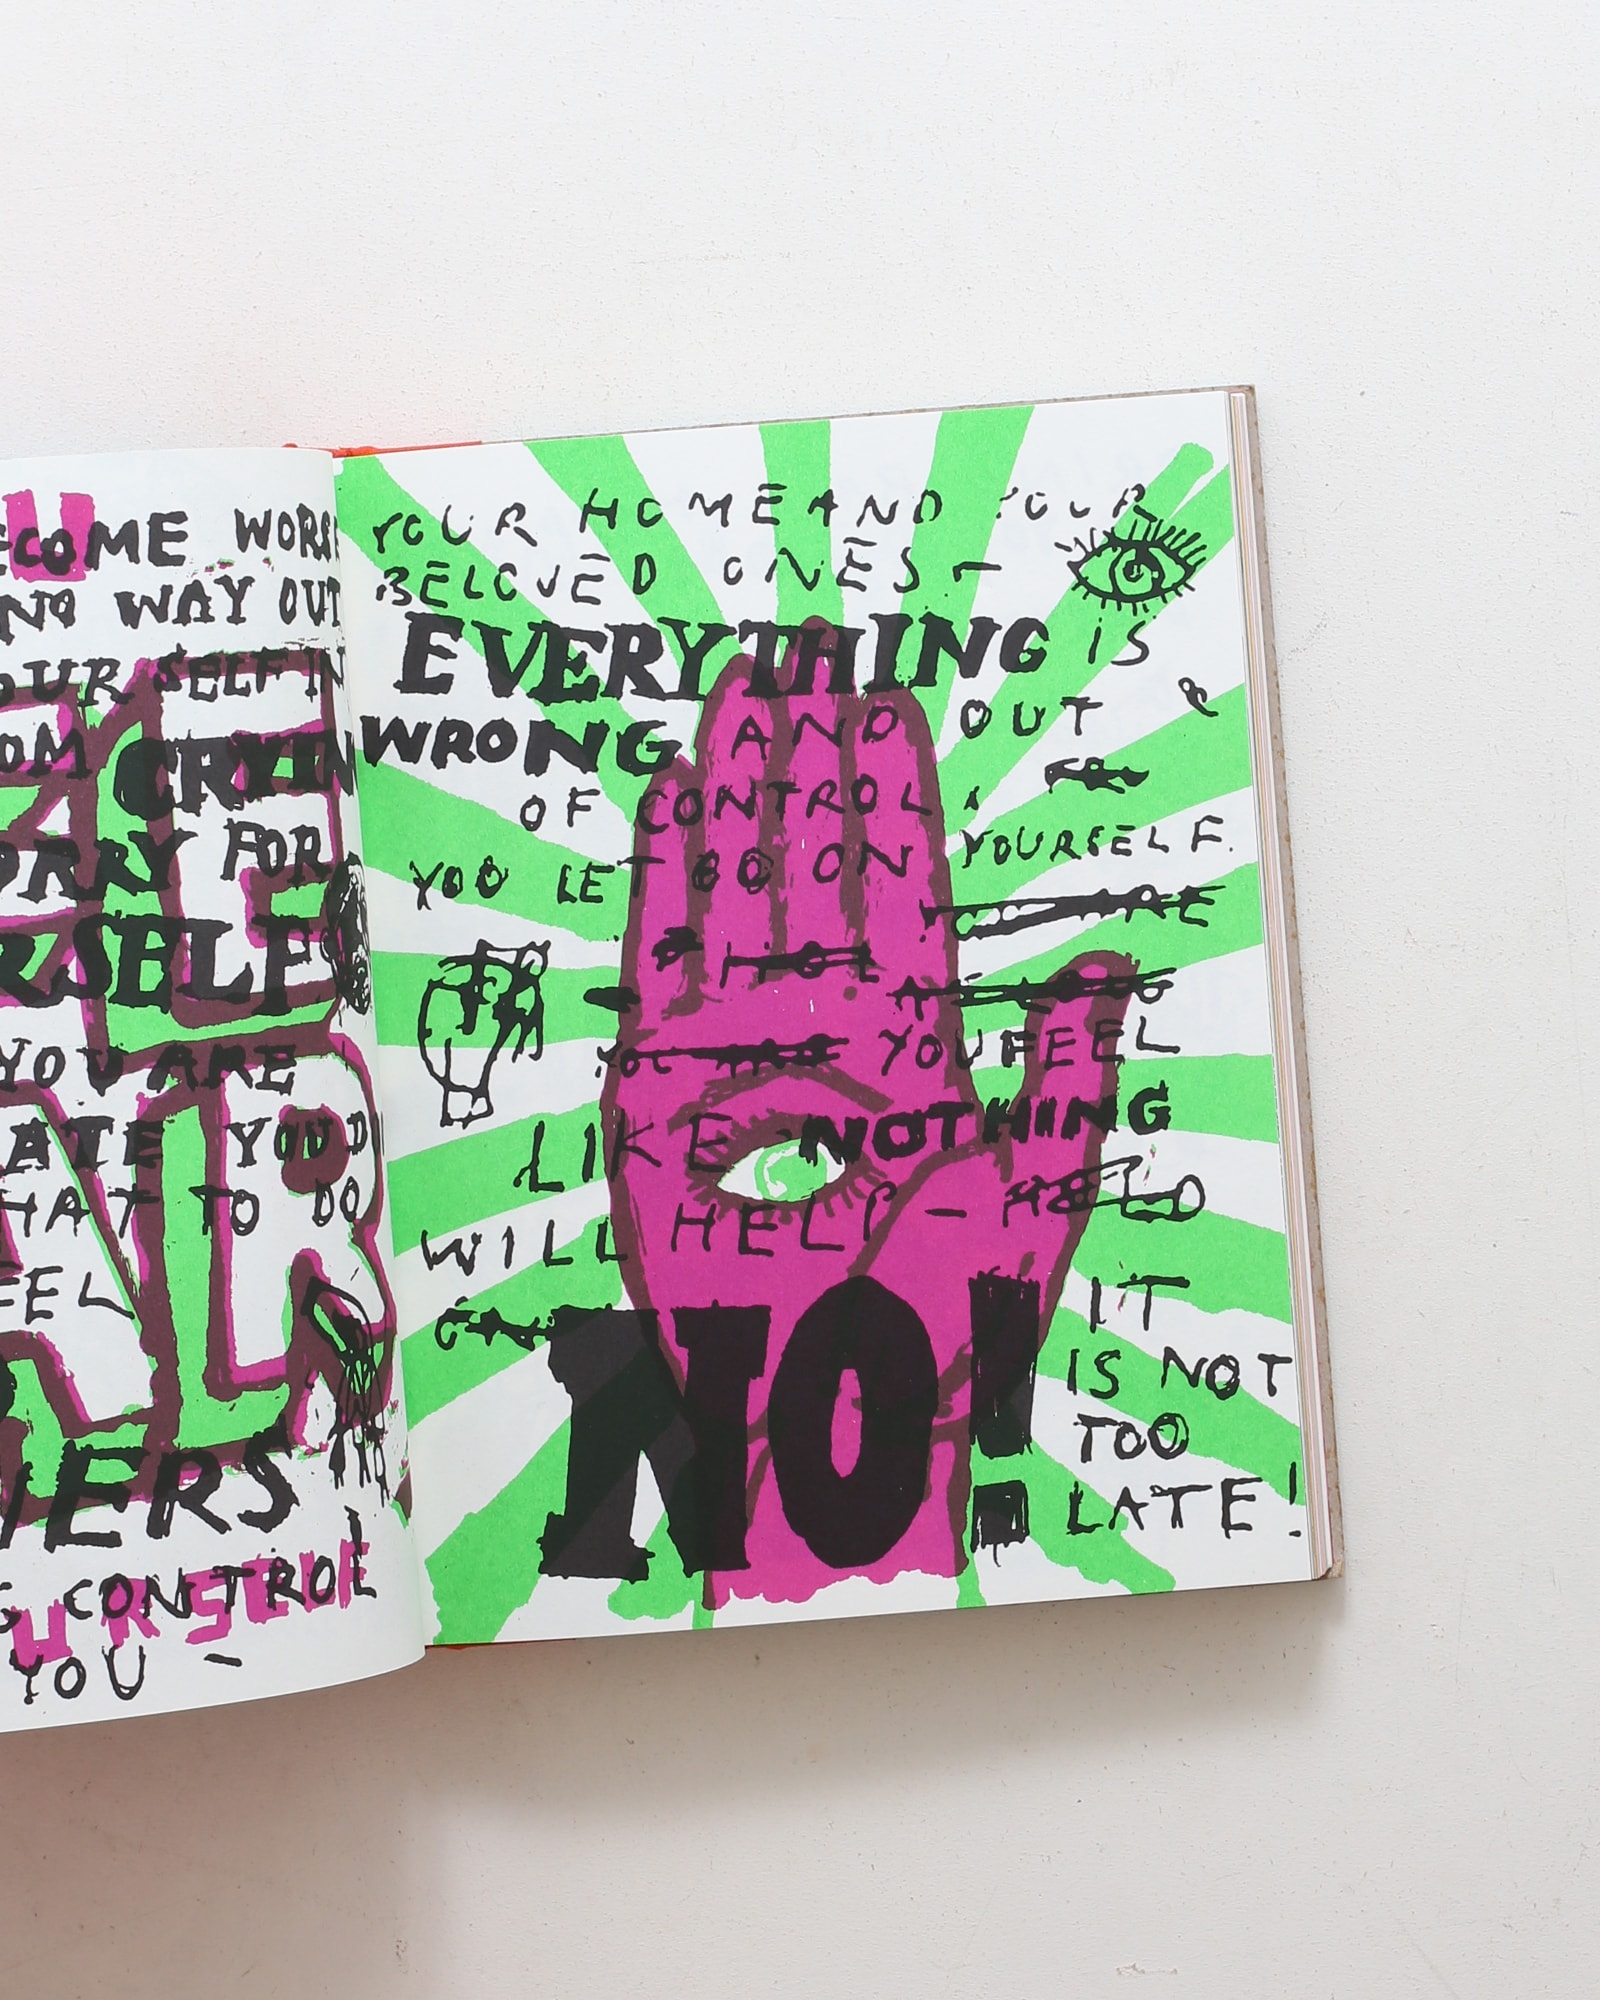 U
ECOME WORSE
NO WAY OUT
OUR SELF IN
OM CRYIN
ORRY FOR
RSELF
YOU ARE
ATE YOU D
HAT TO DO
FEEL
NERS
S CONTROL
URSELF
YOU –
YOUR HOME AND YOUR
BELOVED ONES –
EVERYTHING IS
WRONG AND OUT
OF CONTROL,
YOU LET GO ON YOURSELF.
YOU FEEL
LIKE NOTHING
WILL HELP –
NO!
IT
IS NOT
TOO
LATE!